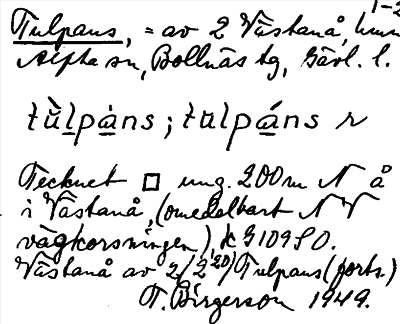 1-2
Tulpans, = av 2 Västanå, hmn
Alfta sn, Bollnäs tg, Gävl. l.
tùlpàns; tulpáns r
Tecknet □ ung. 200 m N å
i Västanå, (omedelbart N V
vägkorsningen), k 9109 S O.
Västanå av 2/2 20) Tulpans (forts.)
T. Birgerson 1949.